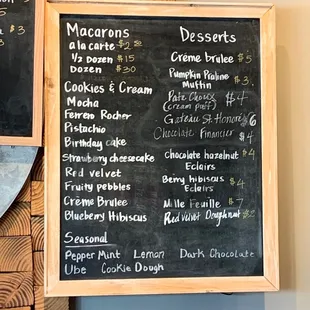 Macarons
a la carte $2.50
1/2 Dozen $15
Dozen $30
Cookies & Cream
Mocha
Ferrero Rocher
Pistachio
Birthday cake
Strawberry cheesecake
Red velvet
Fruity pebbles
Crème Brulee
Blueberry Hibiscus
Seasonal
PepperMint Lemon Dark Chocolate
Ube Cookie Dough
Desserts
Crème brulee $5
Pumpkin Praline
Muffin $3
Pate Choux $4
(cream puff)
Gateau St Honoré $6
Chocolate Financier $4
Chocolate hazelnut $4
Eclairs
Berry hibiscus $4
Eclairs
Mille Feuille $7
Red Velvet Doughnut $2